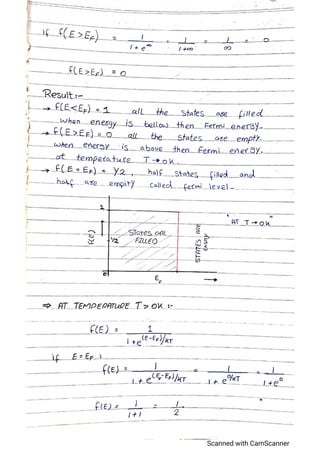 if f(E > EF) = 1 / 1 + e^∞ = 1 / 1+∞ = 1 / ∞ = 0
f(E>EF) = 0
Result:-
→ f(E<EF) = 1 all the states are filled
when energy is bellow then Fermi energy.
→ f(E>EF) = 0 all the states are empty.
when energy is above then Fermi energy.
at temperature T→0k.
→ f(E = EF) = 1/2, half states filed and
half are empity called fermi level.
"AT T→0K"
1
f(E)
STATES ARE
FILLED
1/2
STATES ARE
Empty
0
EF
⇒ AT TEMPERATURE T > 0K :-
f(E) = 1 / 1 + e^(E-EF)/KT
if E = EF ;
f(E) = 1 / 1 + e^(EF-EF)/KT = 1 / 1 + e^0/KT = 1 / 1+e^0
f(E) = 1 / 1+1 = 1 / 2
Scanned with CamScanner